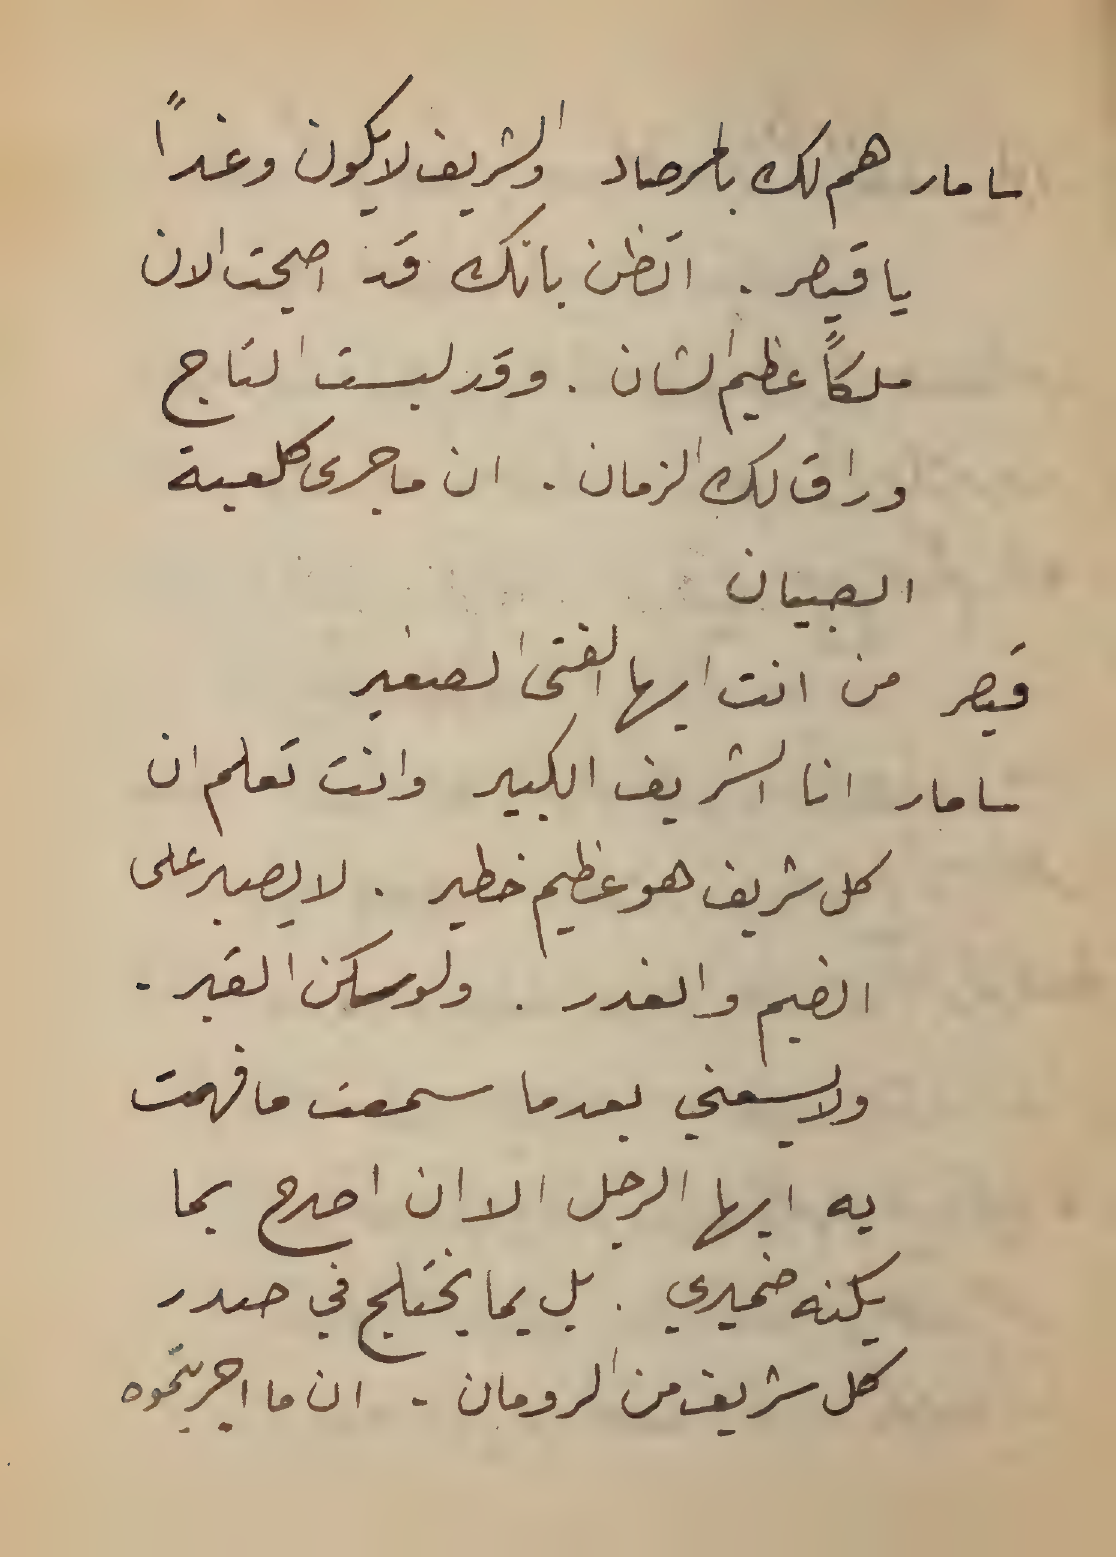 سامار هم لك بالمرصاد والشريف لا يكون وغداً
يا قيصر . اتظن بانك قد اصبحت الان
ملكاً عظيم الشان . وقد لبست التاج
وراق لك الزمان . ان ما جرى كلعبة
الصبيان
قيصر من انت ايها الفتى الصغير
سامار انا الشريف الكبير وانت تعلم ان
كل شريف هو عظيم خطير . لا يصبر على
الضيم والغدر . ولو سكن القبر .
ولا يسعني بعدما سمعت ما فهمت
به ايها الرجل الا ان اصرح بما
يكنه ضميري . بل بما يختلج في صدر
كل شريف من الرومان . ان ما اجريتموه